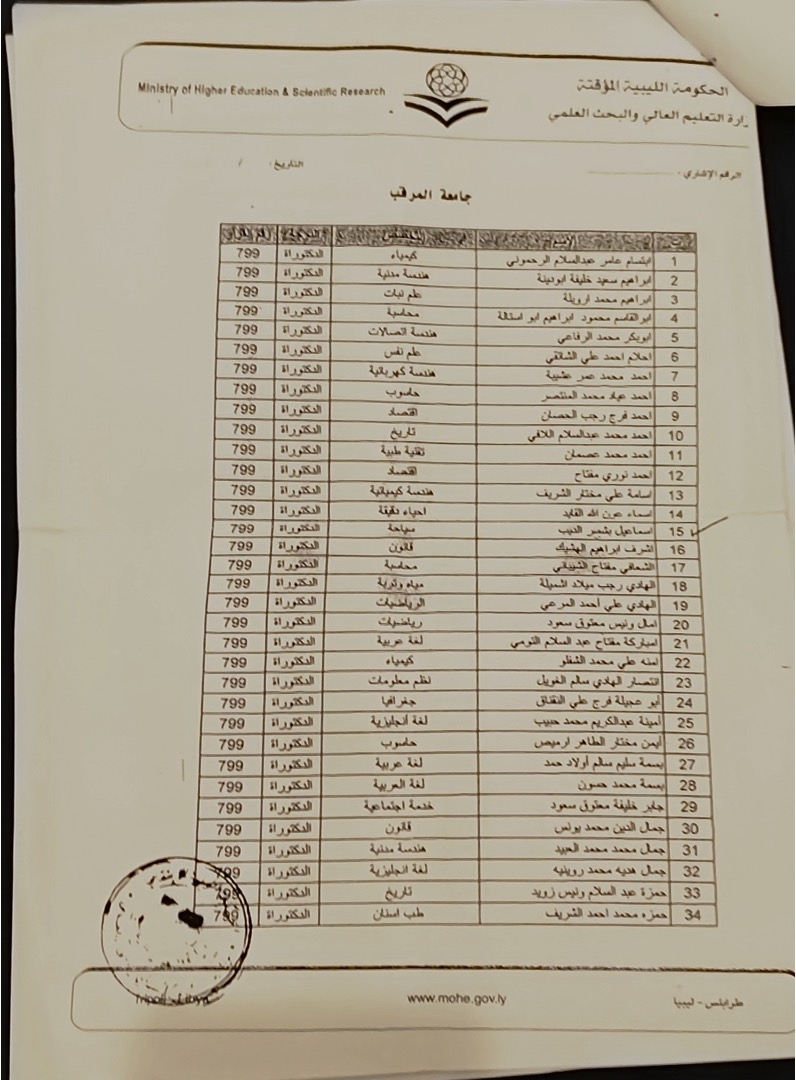 الحكومة الليبية المؤقتة
Ministry of Higher Education & Scientific Research
زارة التعليم العالي والبحث العلمي
الرقم الإشاري :
التاريخ :
جامعة المرقب
الاسم التخصص الدرجة رقم القرار
1 ابتسام عامر عبدالسلام الرحموني كيمياء الدكتوراة 799
2 ابراهيم سعيد خليفة ابودينة هندسة مدنية الدكتوراة 799
3 ابراهيم محمد ارويلة علم نبات الدكتوراة 799
4 ابوالقاسم محمود ابراهيم ابو استالة محاسبة الدكتوراة 799
5 ابوبكر محمد الرفاعي هندسة اتصالات الدكتوراة 799
6 احلام احمد علي الشائقي علم نفس الدكتوراة 799
7 احمد محمد عمر عشيبة هندسة كهربائية الدكتوراة 799
8 احمد عياد محمد المنتصر حاسوب الدكتوراة 799
9 احمد فرج رجب الحصان اقتصاد الدكتوراة 799
10 احمد محمد عبدالسلام اللافي تاريخ الدكتوراة 799
11 احمد محمد عصمان تقنية طبية الدكتوراة 799
12 احمد نوري مفتاح اقتصاد الدكتوراة 799
13 اسامة علي مختار الشريف هندسة كيميائية الدكتوراة 799
14 اسماء عون الله القايد احياء دقيقة الدكتوراة 799
15 اسماعيل بشير الديب سياحة الدكتوراة 799
16 اشرف ابراهيم الهشيك قانون الدكتوراة 799
17 الشعافي مفتاح الشيباني محاسبة الدكتوراة 799
18 الهادي رجب ميلاد اشميلة مياه وتربة الدكتوراة 799
19 الهادي علي أحمد المرعي الرياضيات الدكتوراة 799
20 امال ونيس معتوق سعود رياضيات الدكتوراة 799
21 امباركة مفتاح عبد السلام التومي لغة عربية الدكتوراة 799
22 امنه علي محمد الشفلو كيمياء الدكتوراة 799
23 انتصار الهادي سالم الغويل نظم معلومات الدكتوراة 799
24 أبو عجيلة فرج علي النقناق جغرافيا الدكتوراة 799
25 أمينة عبدالكريم محمد حبيب لغة أنجليزية الدكتوراة 799
26 أيمن مختار الطاهر ارميص حاسوب الدكتوراة 799
27 بسمة سليم سالم أولاد حمد لغة عربية الدكتوراة 799
28 بسمة محمد حسون لغة العربية الدكتوراة 799
29 جابر خليفة معتوق سعود خدمة اجتماعية الدكتوراة 799
30 جمال الدين محمد يونس قانون الدكتوراة 799
31 جمال محمد محمد العبيد هندسة مدنية الدكتوراة 799
32 جمال هديه محمد روينيه لغة انجليزية الدكتوراة 799
33 حمزة عبد السلام ونيس زويد تاريخ الدكتوراة 799
34 حمزه محمد احمد الشريف طب اسنان الدكتوراة 799
طرابلس - ليبيا
www.mohe.gov.ly
Tripoli - Libya